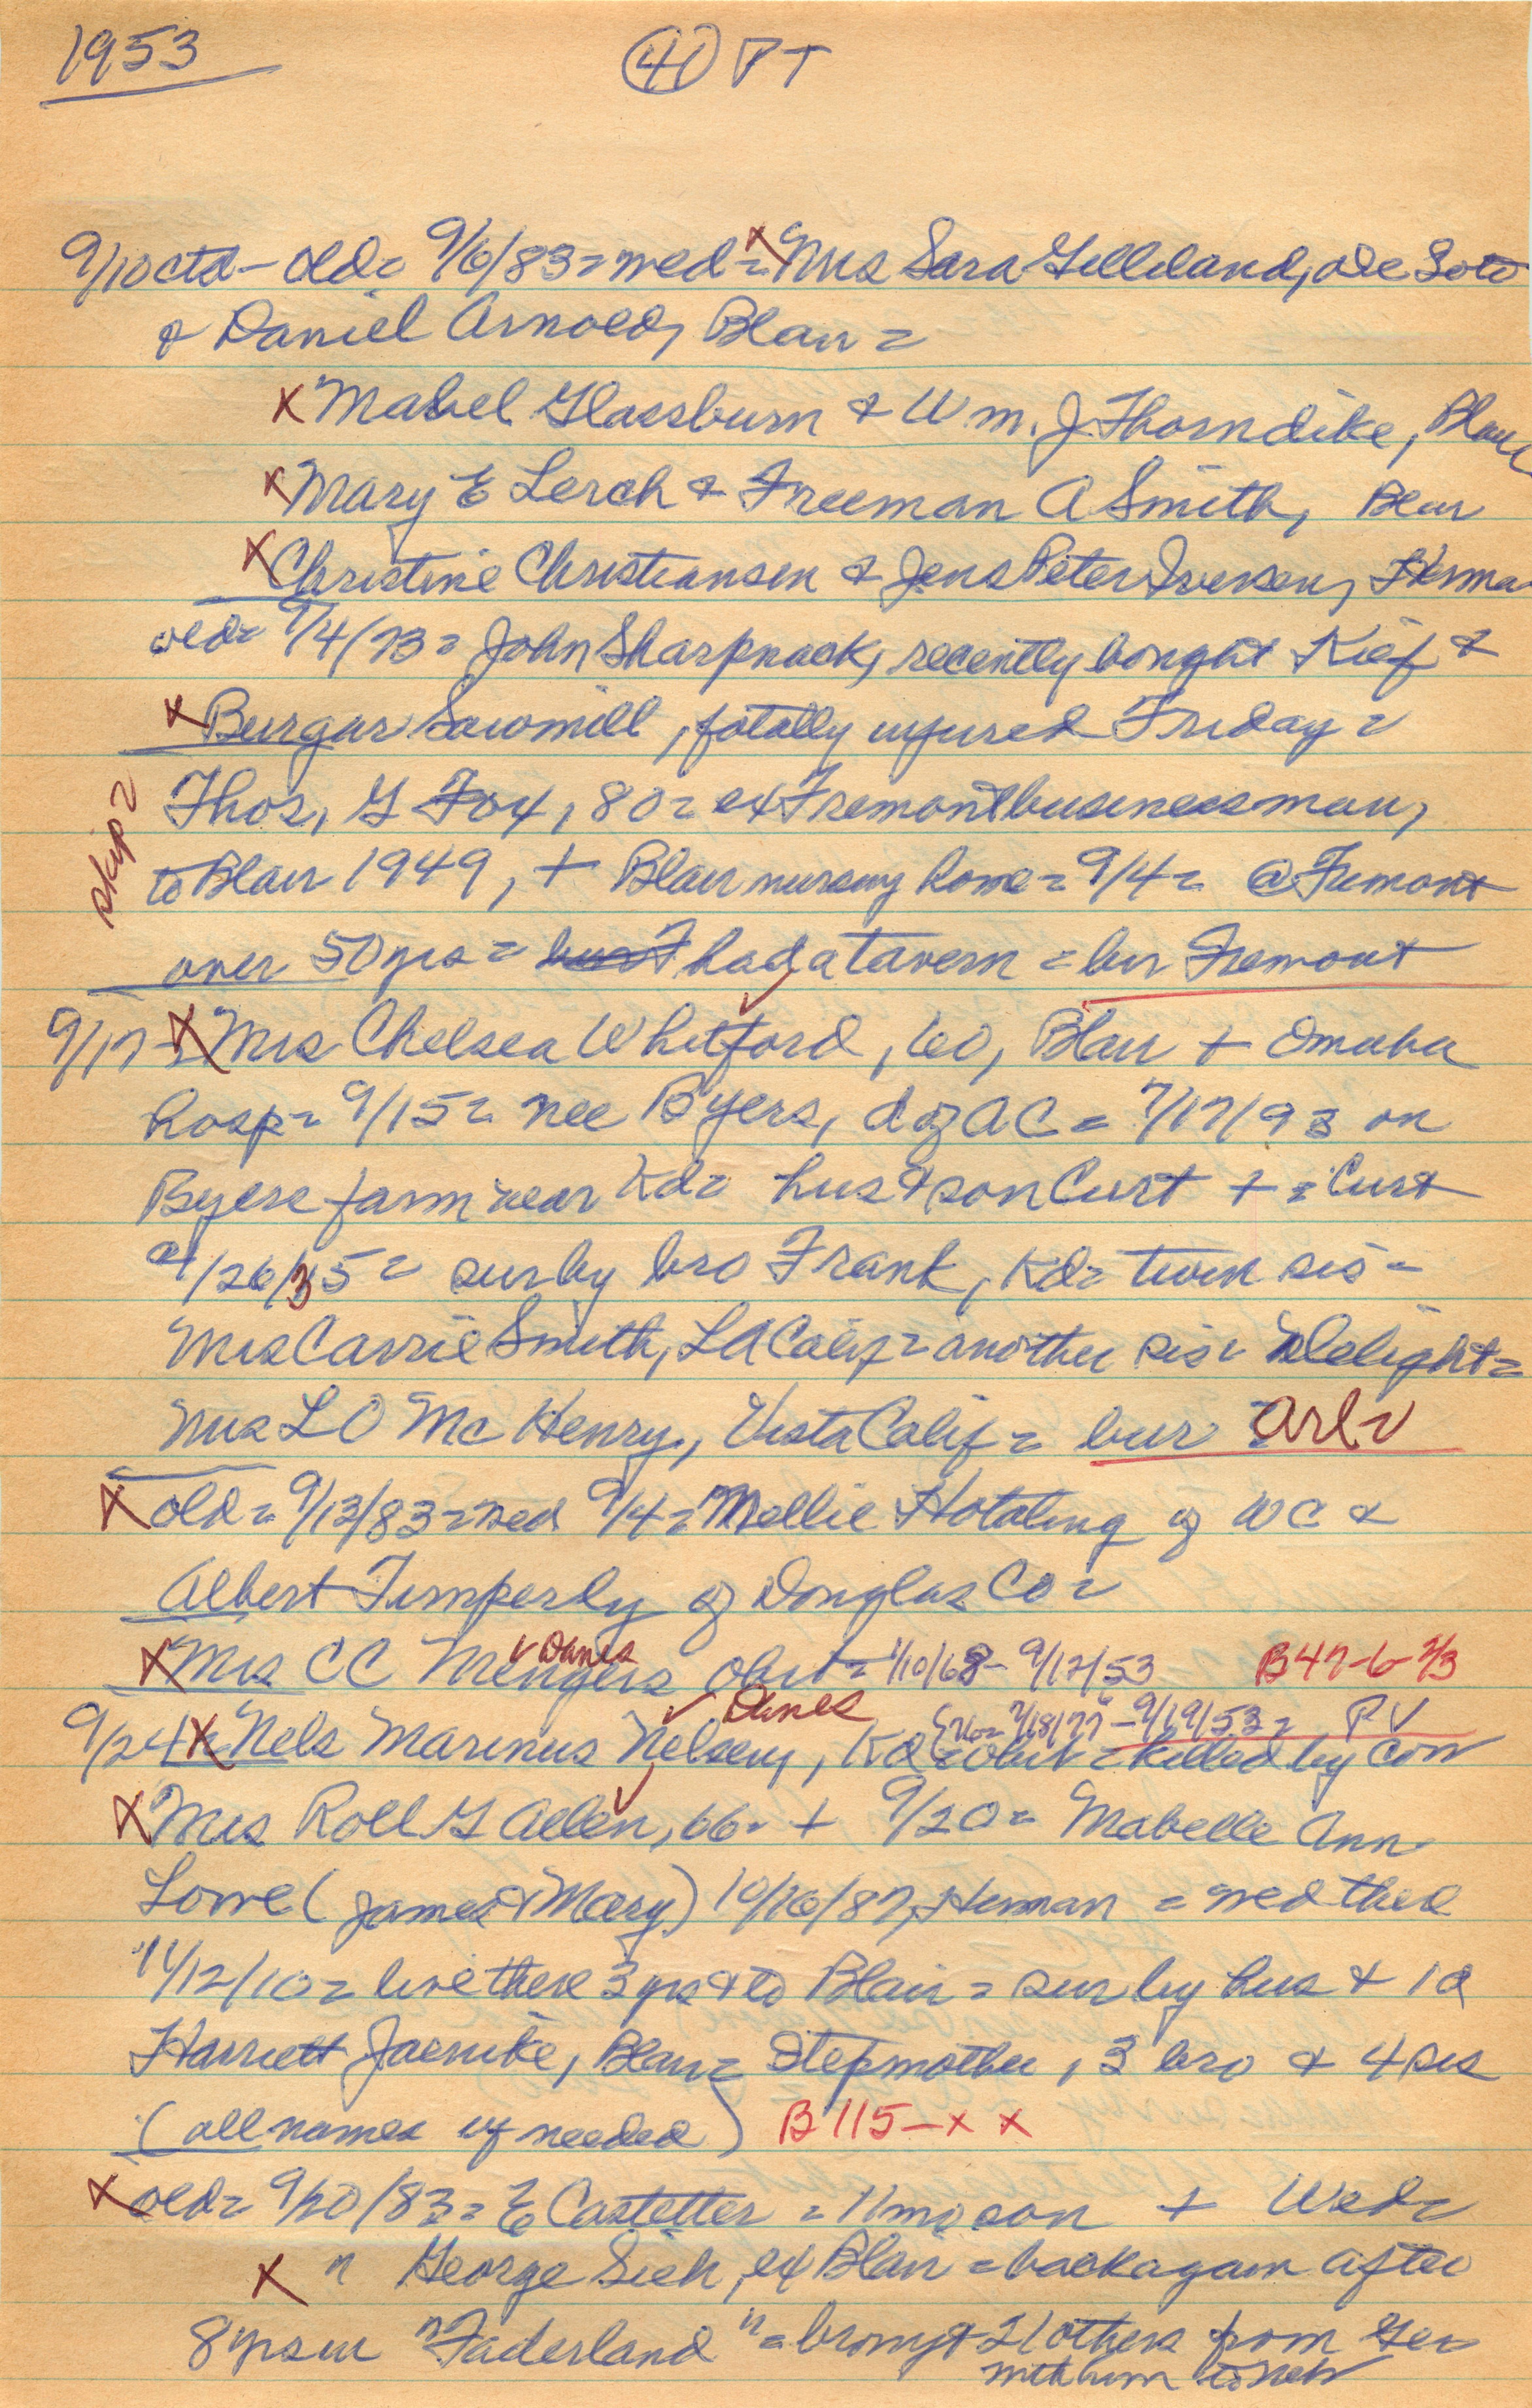 1953
41 PT
9/10 ctd - old = 9/6/83 = wed = x Mrs Sara Gilleland, De Soto
& Daniel Arnold, Blair =
x Mabel Glassburn & Wm. J. Thorndike, Blair
x Mary E Lerch & Freeman A Smith, Blair
x Christine Christiansen & Jens Peter Iversen, Herma
old = 9/4/73 = John Sharpnack, recently bought Kief &
x Burgar Sawmill, fatally injured Friday =
Thos, G Fox, 80 = ex Fremont businessman,
skip =
to Blair 1949, + Blair nursing home = 9/4 = @ Fremont
over 50 yrs = had a tavern = bur Fremont
9/17 = x Mrs Chelsea Whitford, 60, Blair + Omaha
hosp = 9/15 = nee Byers, d of AC = 7/17/93 on
Byers farm near Kd = hus & son Curt + = Curt
/26/35 = sur by bro Frank, Kd = twin sis =
Mrs Carrie Smith, LA Calif = another sis = Delight =
Mrs L O McHenry, Vista Calif = bur = Arl =
x old = 9/13/83 = wed 9/4 = Mellie Hotaling of WC &
Albert Timperly of Douglas Co =
x Mrs CC Mengers Danes obit = 1/10/68 - 9/12/53 B47-6-2/3
9/24 x Nels Marinus Nelsen, Danes Kd = obit = killed by cow
7/18/77 - 9/19/53 = PV
x Mrs Roll G Allen, 66 = + 9/20 = Mabelle Ann
Lowe (James & Mary) 10/16/87, Herman = wed there
11/12/10 = live there 3 yrs & to Blair = sur by hus & 1 d
Harriett Jaenike, Blair = Stepmother, 3 bro & 4 sis
(all names if needed) B 115 - x x
x old = 9/20/83 = E Castetter = 11 mo son + Wed =
x " George Sieh, ex Blair = back again after
8 yrs in "Faderland" = brought 21 others from Ger
with him to Neb